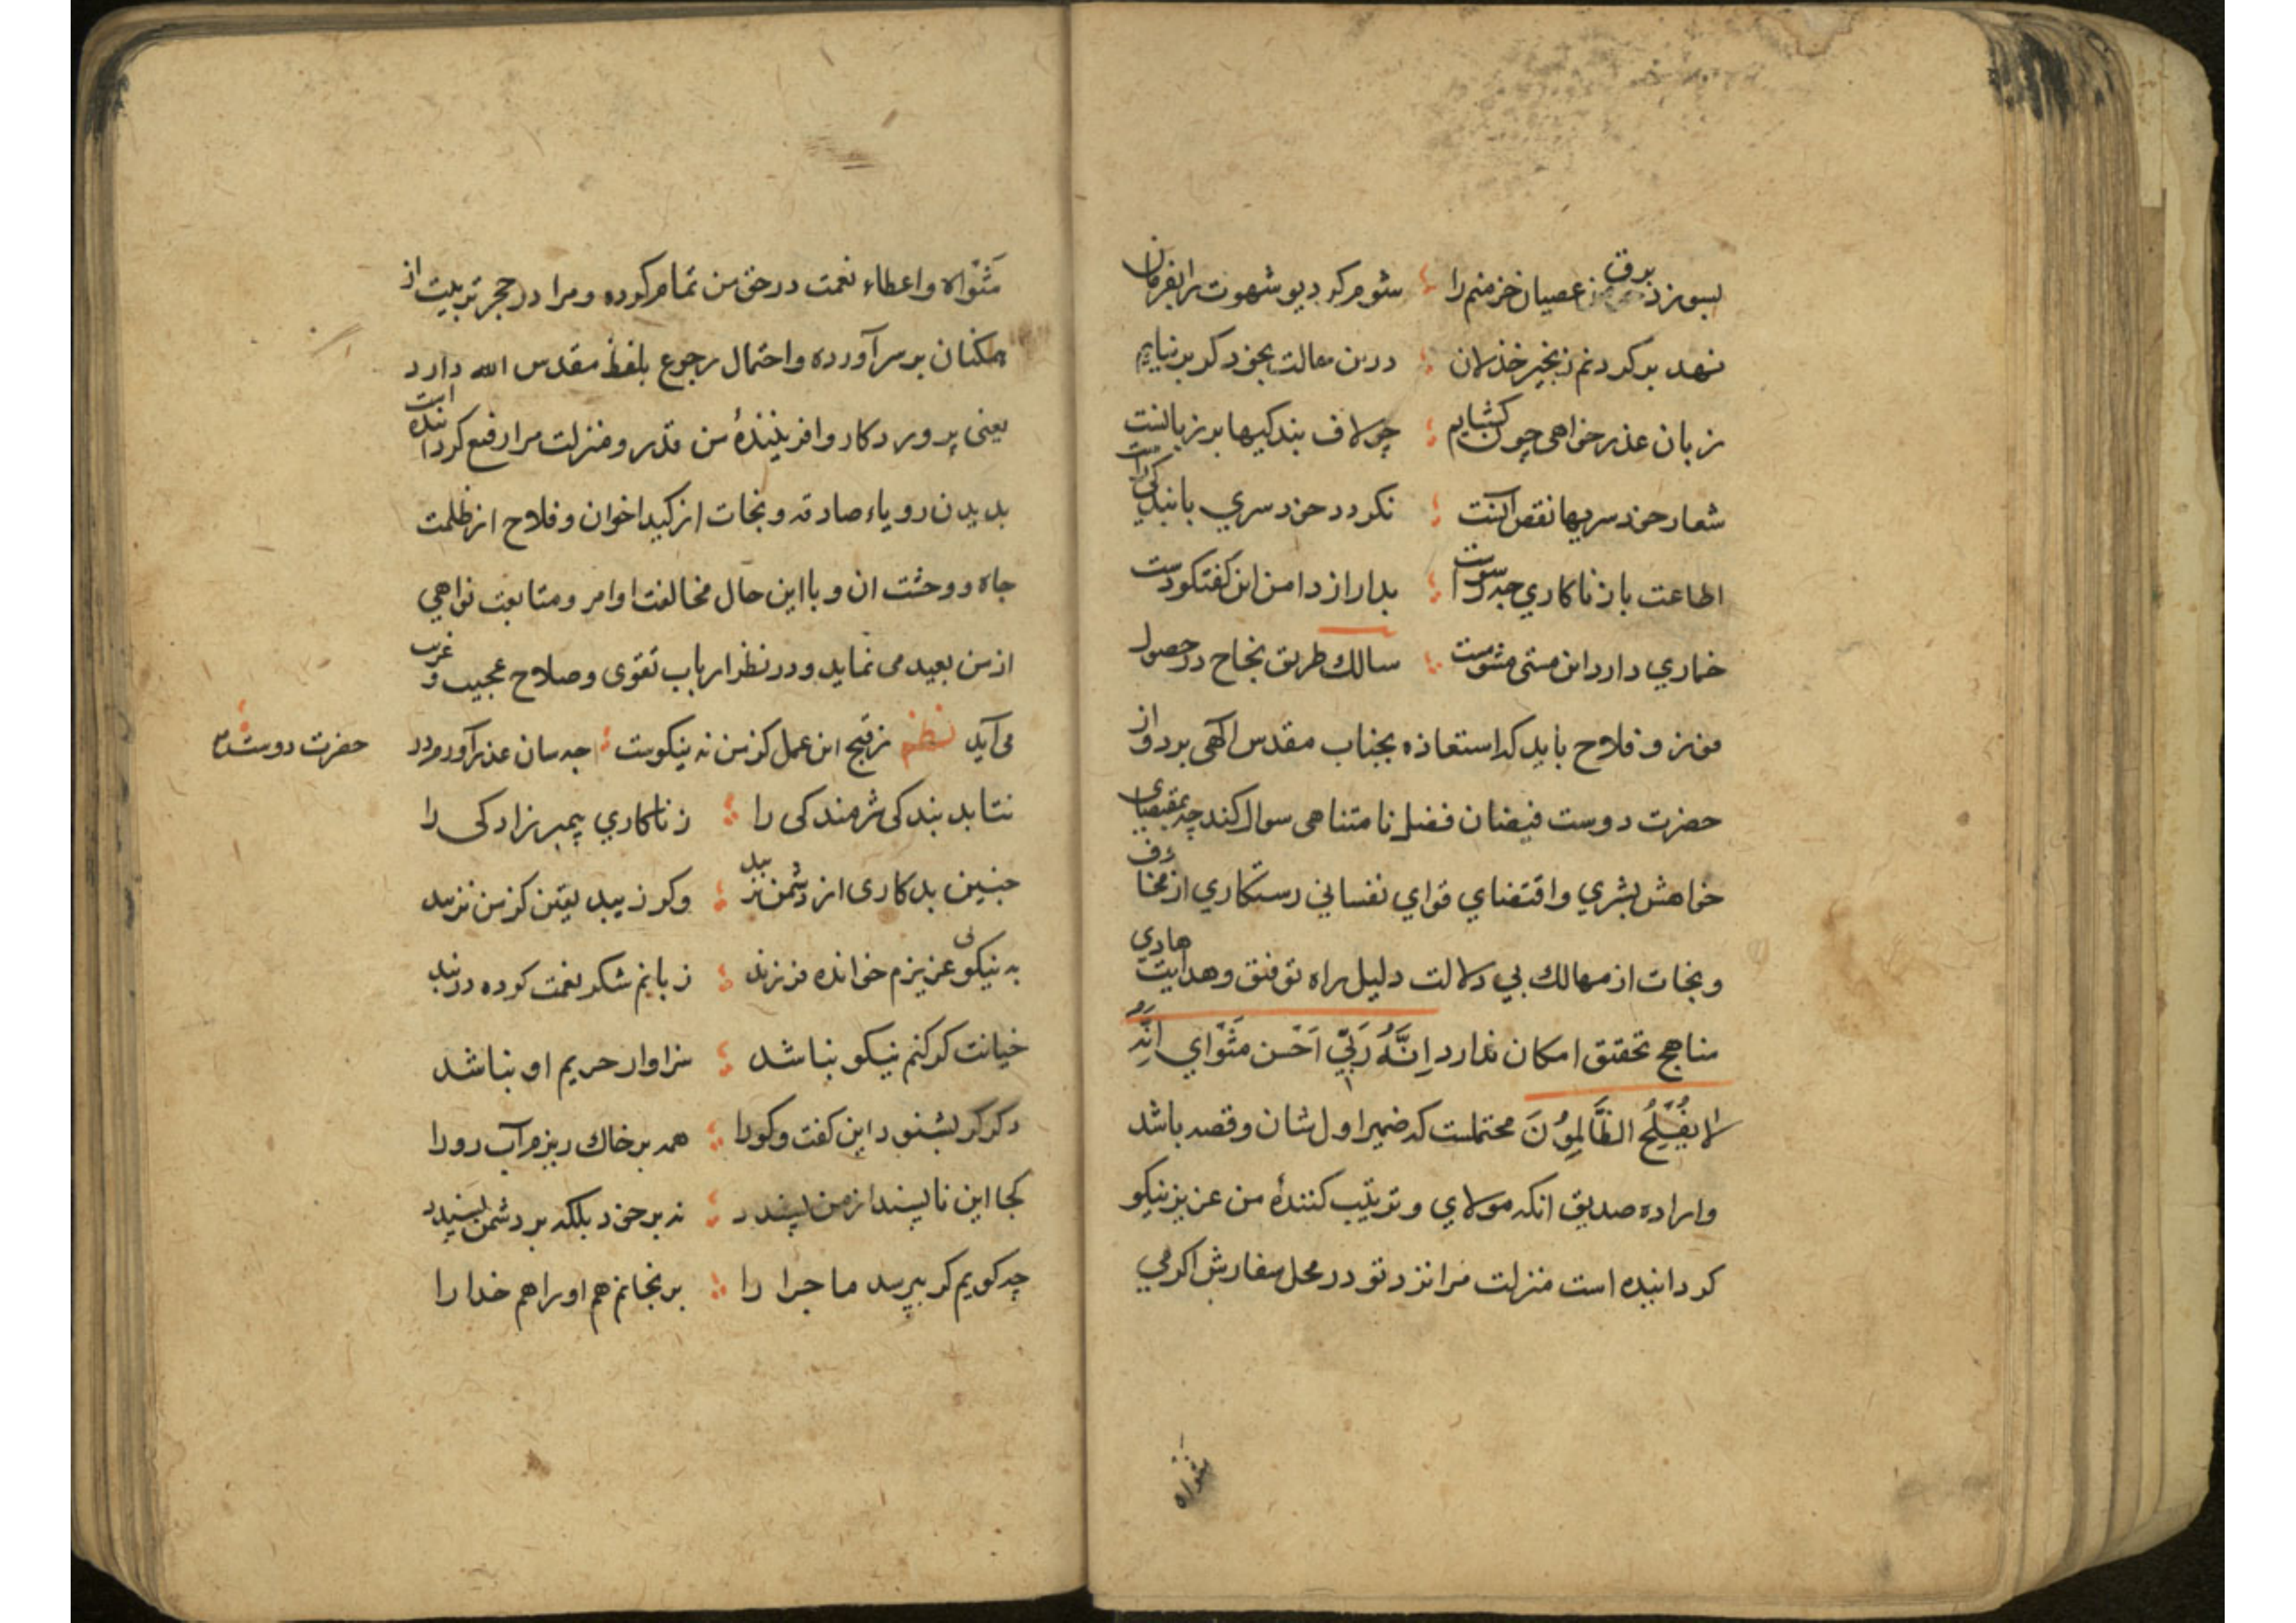 بسوزد برق عصیان خرمنم را شوم کر دیو شهوت را بفرمان
نهد بر کردنم زنجیر خذلان درین حالت بخود کر بر نیایم
زبان عذر خواهی چون کشایم چو لاف بندکیها بر زبانست
شعار خود سریها نقص آنست نکردد خود سری با بندکی راست
اطاعت با زناکاری چه سوداست بدار از دامن این کفتکو دست
خماری دارد این مستی مشو مست سالك طریق نجاح در حصول
فوز و فلاح باید که استعاذه بجناب مقدس الهی برد و از
حضرت دوست فیضان فضل نا متناهی سوال کند چه بمقتضای
خواهش بشري و اقتضاي قواي نفساني رستکاري از مخاوف
و نجات از مهالك بي دلالت دلیل راه توفیق و هدایت هادي
مناهج تحقیق امکان ندارد اِنَّهُ رَبّي اَحْسن مَثْوَاي اِنَّهُ
لا یُفْلِحُ الظَّالِمِوُنَ محتملست که ضمیر اول شان و قصه باشد
و اراده صدیق انکه مولاي و تربیت کنندۀ من عزیز نیکو
کردانیده است منزلت مرا نزد تو در محل سفارش اکرمي
مثواه
مَثْوَاه و اعطاء نعمت در حق من تمام کرده و مرا در حجر تربیت از
همکنان بر سر آورده و احتمال رجوع بلفظ مقدس الله دارد
یعنی پروردکار و افرینندۀ من قدر و منزلت مرا رفیع کردانیده است
بدیدن رویاء صادقه و نجات از کید اخوان و فلاح از ظلمت
چاه و وحشت ان و با این حال مخالفت اوامر و متابعت نواهي
از من بعید می نماید و در نظر ارباب تقوی و صلاح عجیب و غریب
می آید نظم ز قبح این عمل کز من نه نیکوست چه سان عذر آورم در
حضرت دوست
نتابد بندکی شرمندکی را زناکاري پیمبر زادکی را
چنین بد کاری از دشمن نزیبد وکر زیبد یقین کز من نزیبد
به نیکویی عزیزم خوانده فرزند زبانم شکر نعمت کرده در بند
خیانت کر کنم نیکو نباشد سزاوار حریم او نباشد
دکر کر بشنود این کفت و کو را همه بر خاك ریزم آب رو را
کجا این ناپسند از من پسندد نه بر خود بلکه بر دشمن پسندد
چه کویم کر بپرسد ماجرا را برنجانم هم او را هم خدا را